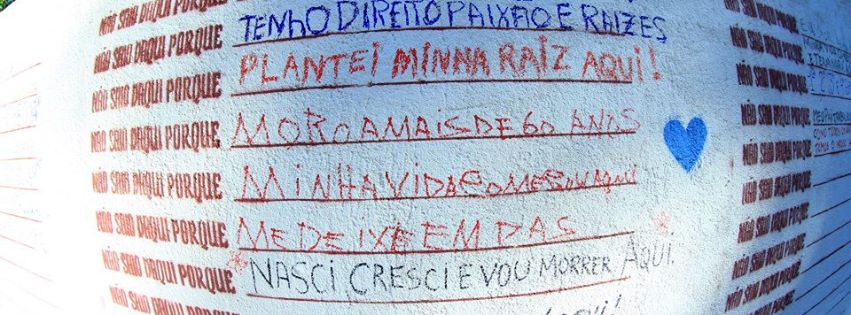 NÃO SAIO DAQUI PORQUE TENHO DIREITO PAIXÃO E RAIZES
NÃO SAIO DAQUI PORQUE PLANTEI MINNA RAIZ AQUI!
NÃO SAIO DAQUI PORQUE
NÃO SAIO DAQUI PORQUE MORO A MAIS DE 60 ANOS
NÃO SAIO DAQUI PORQUE MINHA VIDA COMESOU AQUI
NÃO SAIO DAQUI PORQUE ME DEIXE EM PAS
NÃO SAIO DAQUI PORQUE NASCI CRESCI E VOU MORRER AQUI.
NÃO SAIO DAQUI PORQUE
NÃO SAIO
NÃO SAIO DAQUI PORQUE
NÃO SAIO DAQUI PORQUE
NÃO SAIO DAQUI PORQUE
NÃO SAIO DAQUI PORQUE
NÃO SAIO DAQUI PORQUE
NÃO SAIO DAQUI PORQUE
NÃO SAIO DAQUI PORQUE
NÃO SAIO DAQUI PORQUE